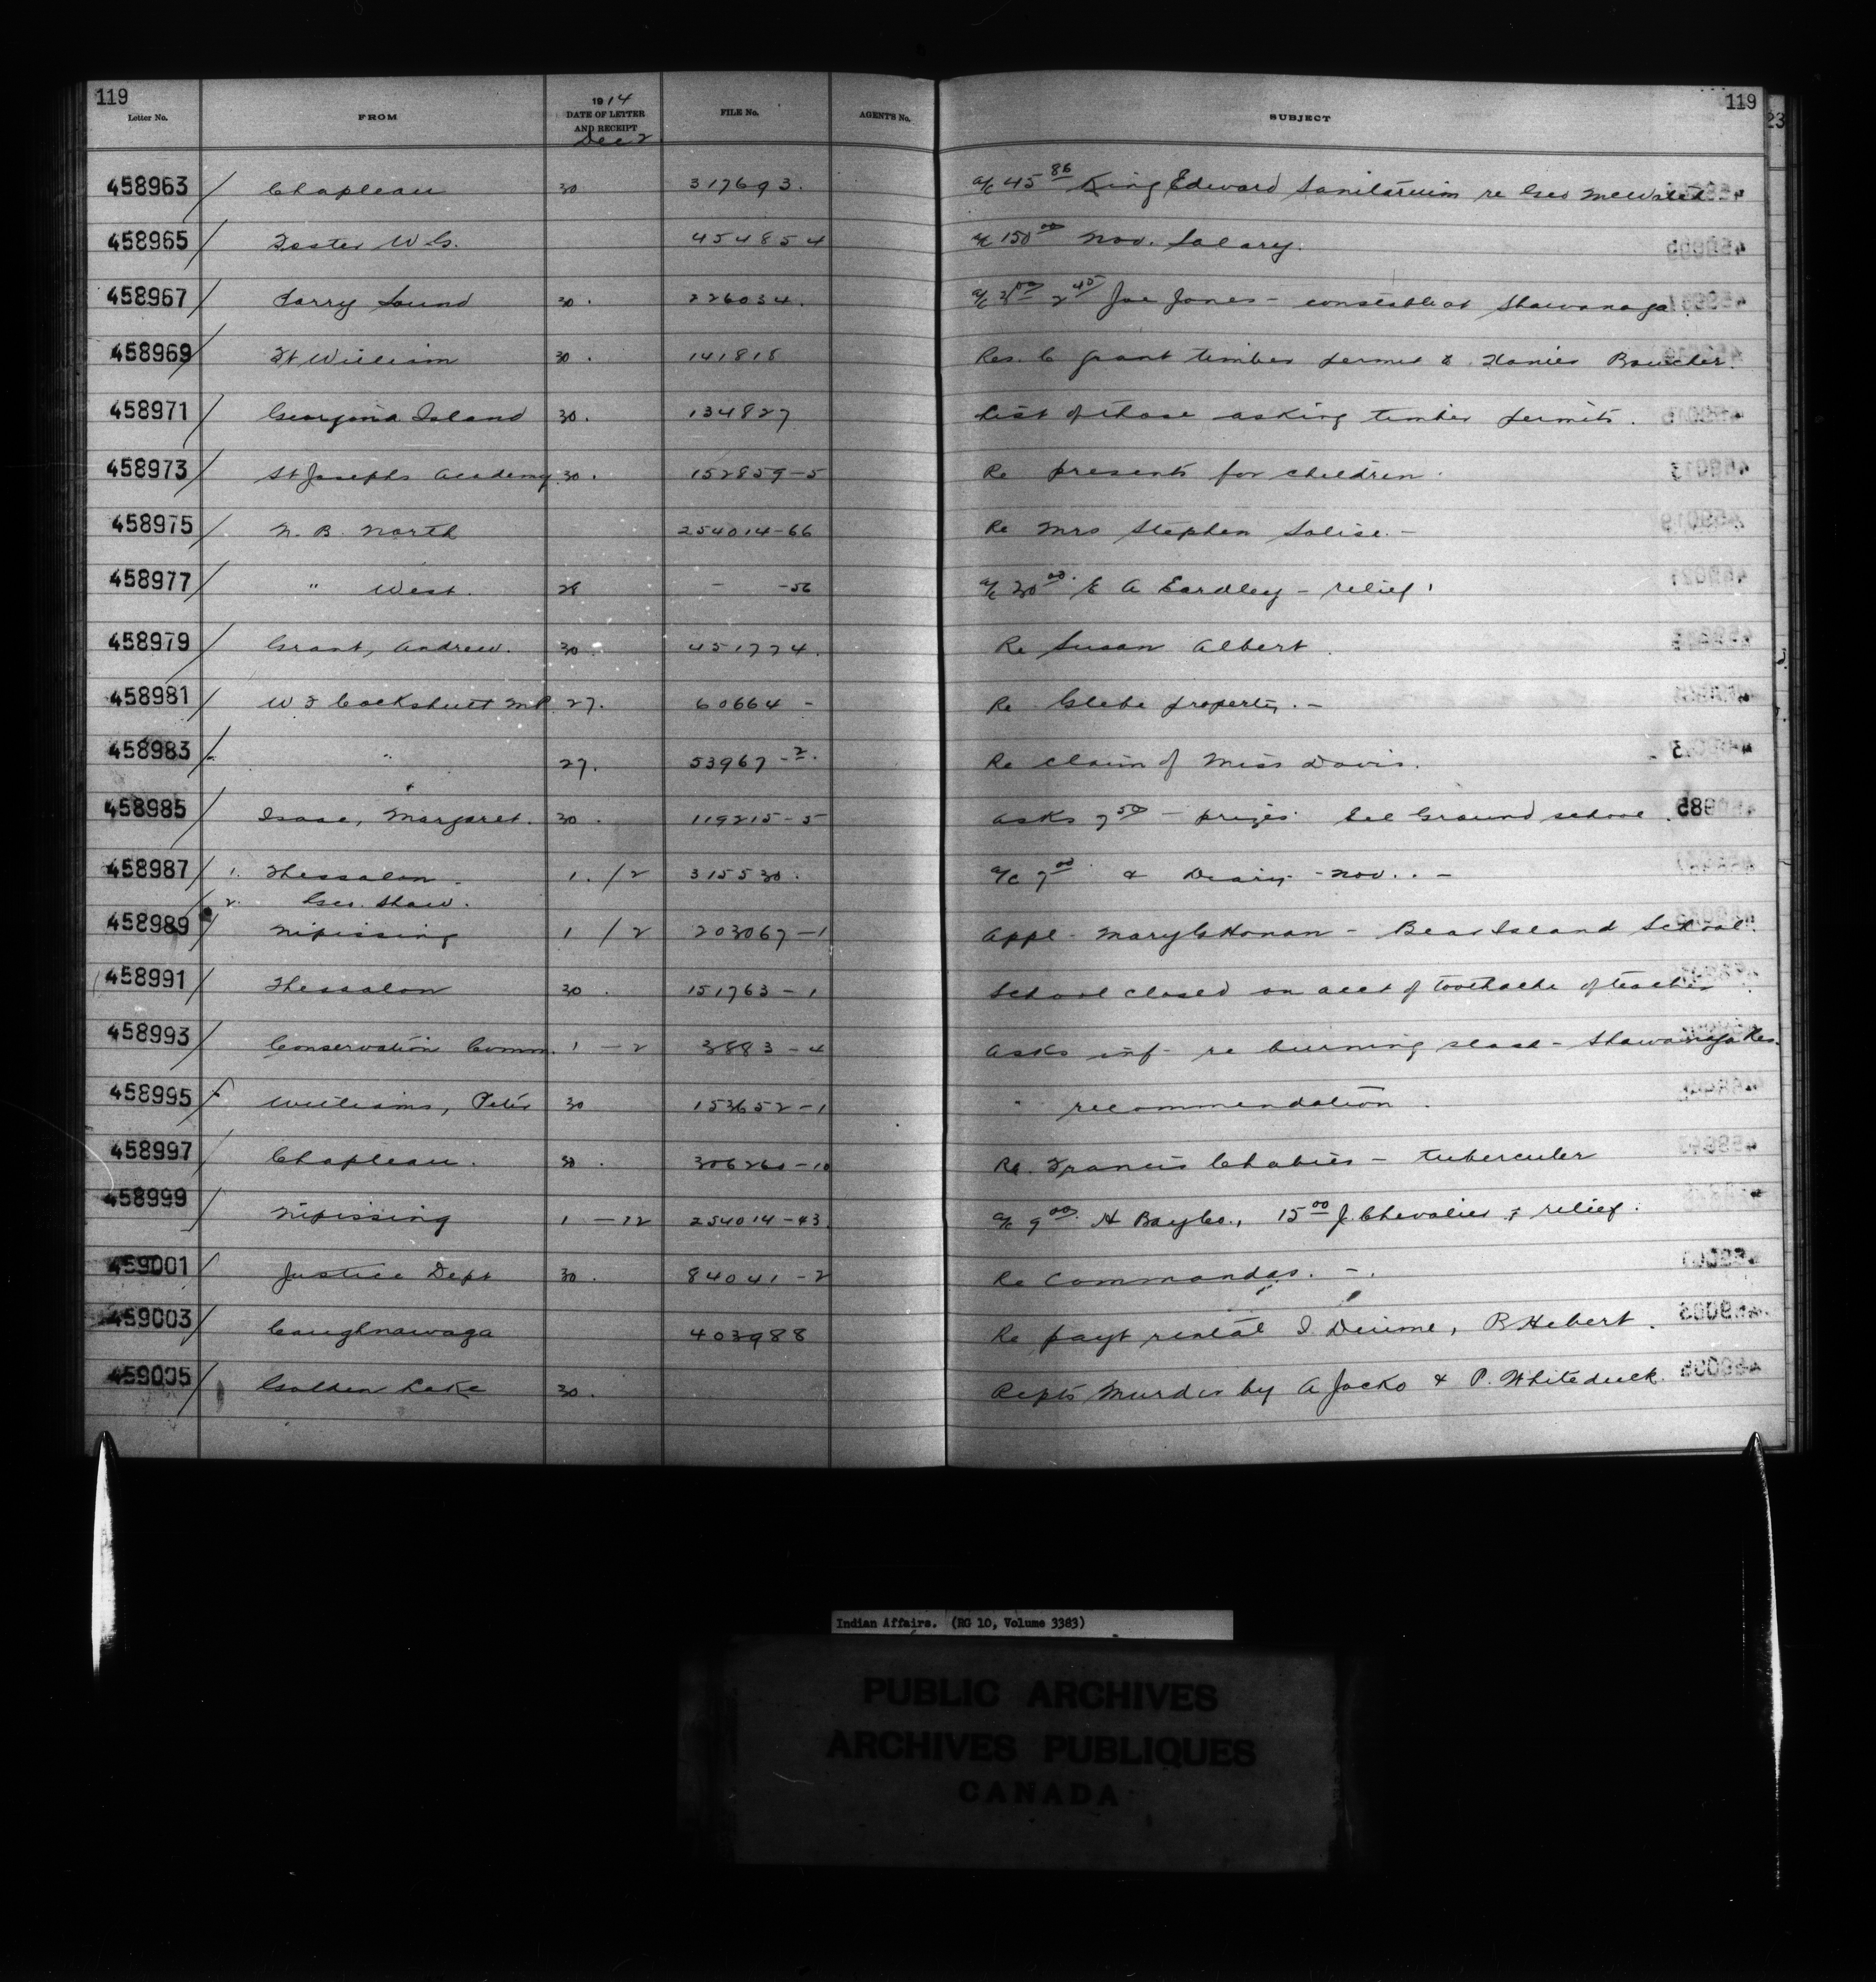 119 119
Letter No. FROM 1914 DATE OF LETTER AND RECEIPT FILE No. AGENT'S No. SUBJECT
Dec 2
23
458963 / Chapleau 30 317693. a/c 45 86 King Edward Sanitarium re Geo
458965 / Foster W G. 454854 a/c 150 00 Nov. Salary.
458967 / Parry Sound 30. 226034. a/c 2 45 Joe Jones - constable at Shawanaga
458969 / Ft William 30. 141818 Res. C grant timber permit Boucher.
458971 / Georgina Island 30. 134827 List of those asking timber permits.
458973 / St Josephs Academy 30. 152859-5 Re presents for children.
458975 / N. B. North 254014-66 Re Mrs Stephen Solise. -
458977 / " West. 28 - -56 a/c 30 00. E A Eardley - relief
458979 / Grant, Andrew. 30 451774. Re Susan Albert.
458981 / W F Cockshutt M.P. 27. 60664 - Re Glebe property. -
458983 / " 27. 53967-2. Re claim of Miss Davis.
458985 / Isaac, Margaret. 30. 119215-5 Asks 7 50 - prizes. Eel Ground school.
458987 / 1. Thessalon. 1. /2 315530. a/c 7 00 & Diary - Nov. . -
2. Geo. Shaw.
458989 / Nipissing 1 /2 203067-1 Appl - Mary C Honan - Bear Island School.
458991 / Thessalon 30. 151763-1 School closed on acct of toothache of teacher
458993 / Conservation Comm. 1 - 2 3883-4 Asks inf - re burning slash - Shawanaga Res.
458995 / Williams, Peter 30 153652-1 " recommendation.
458997 / Chapleau. 30. 306260-10 Re. Francis Chabies - tubercular
458999 / Nipissing 1 - 12 254014-43. a/c 9 00. H Bay Co., 15 00 J. Chevalier ; relief.
459001 / Justice Dept 30. 84041-2 Re Commandas. -.
459003 / Caughnawaga 403988 Re payt rental I. Diume, P. Hebert.
459005 / Golden Lake 30. Repts Murder by A Jocko & P. Whiteduck.
Indian Affairs. (RG 10, Volume 3383)
PUBLIC ARCHIVES
ARCHIVES PUBLIQUES
CANADA